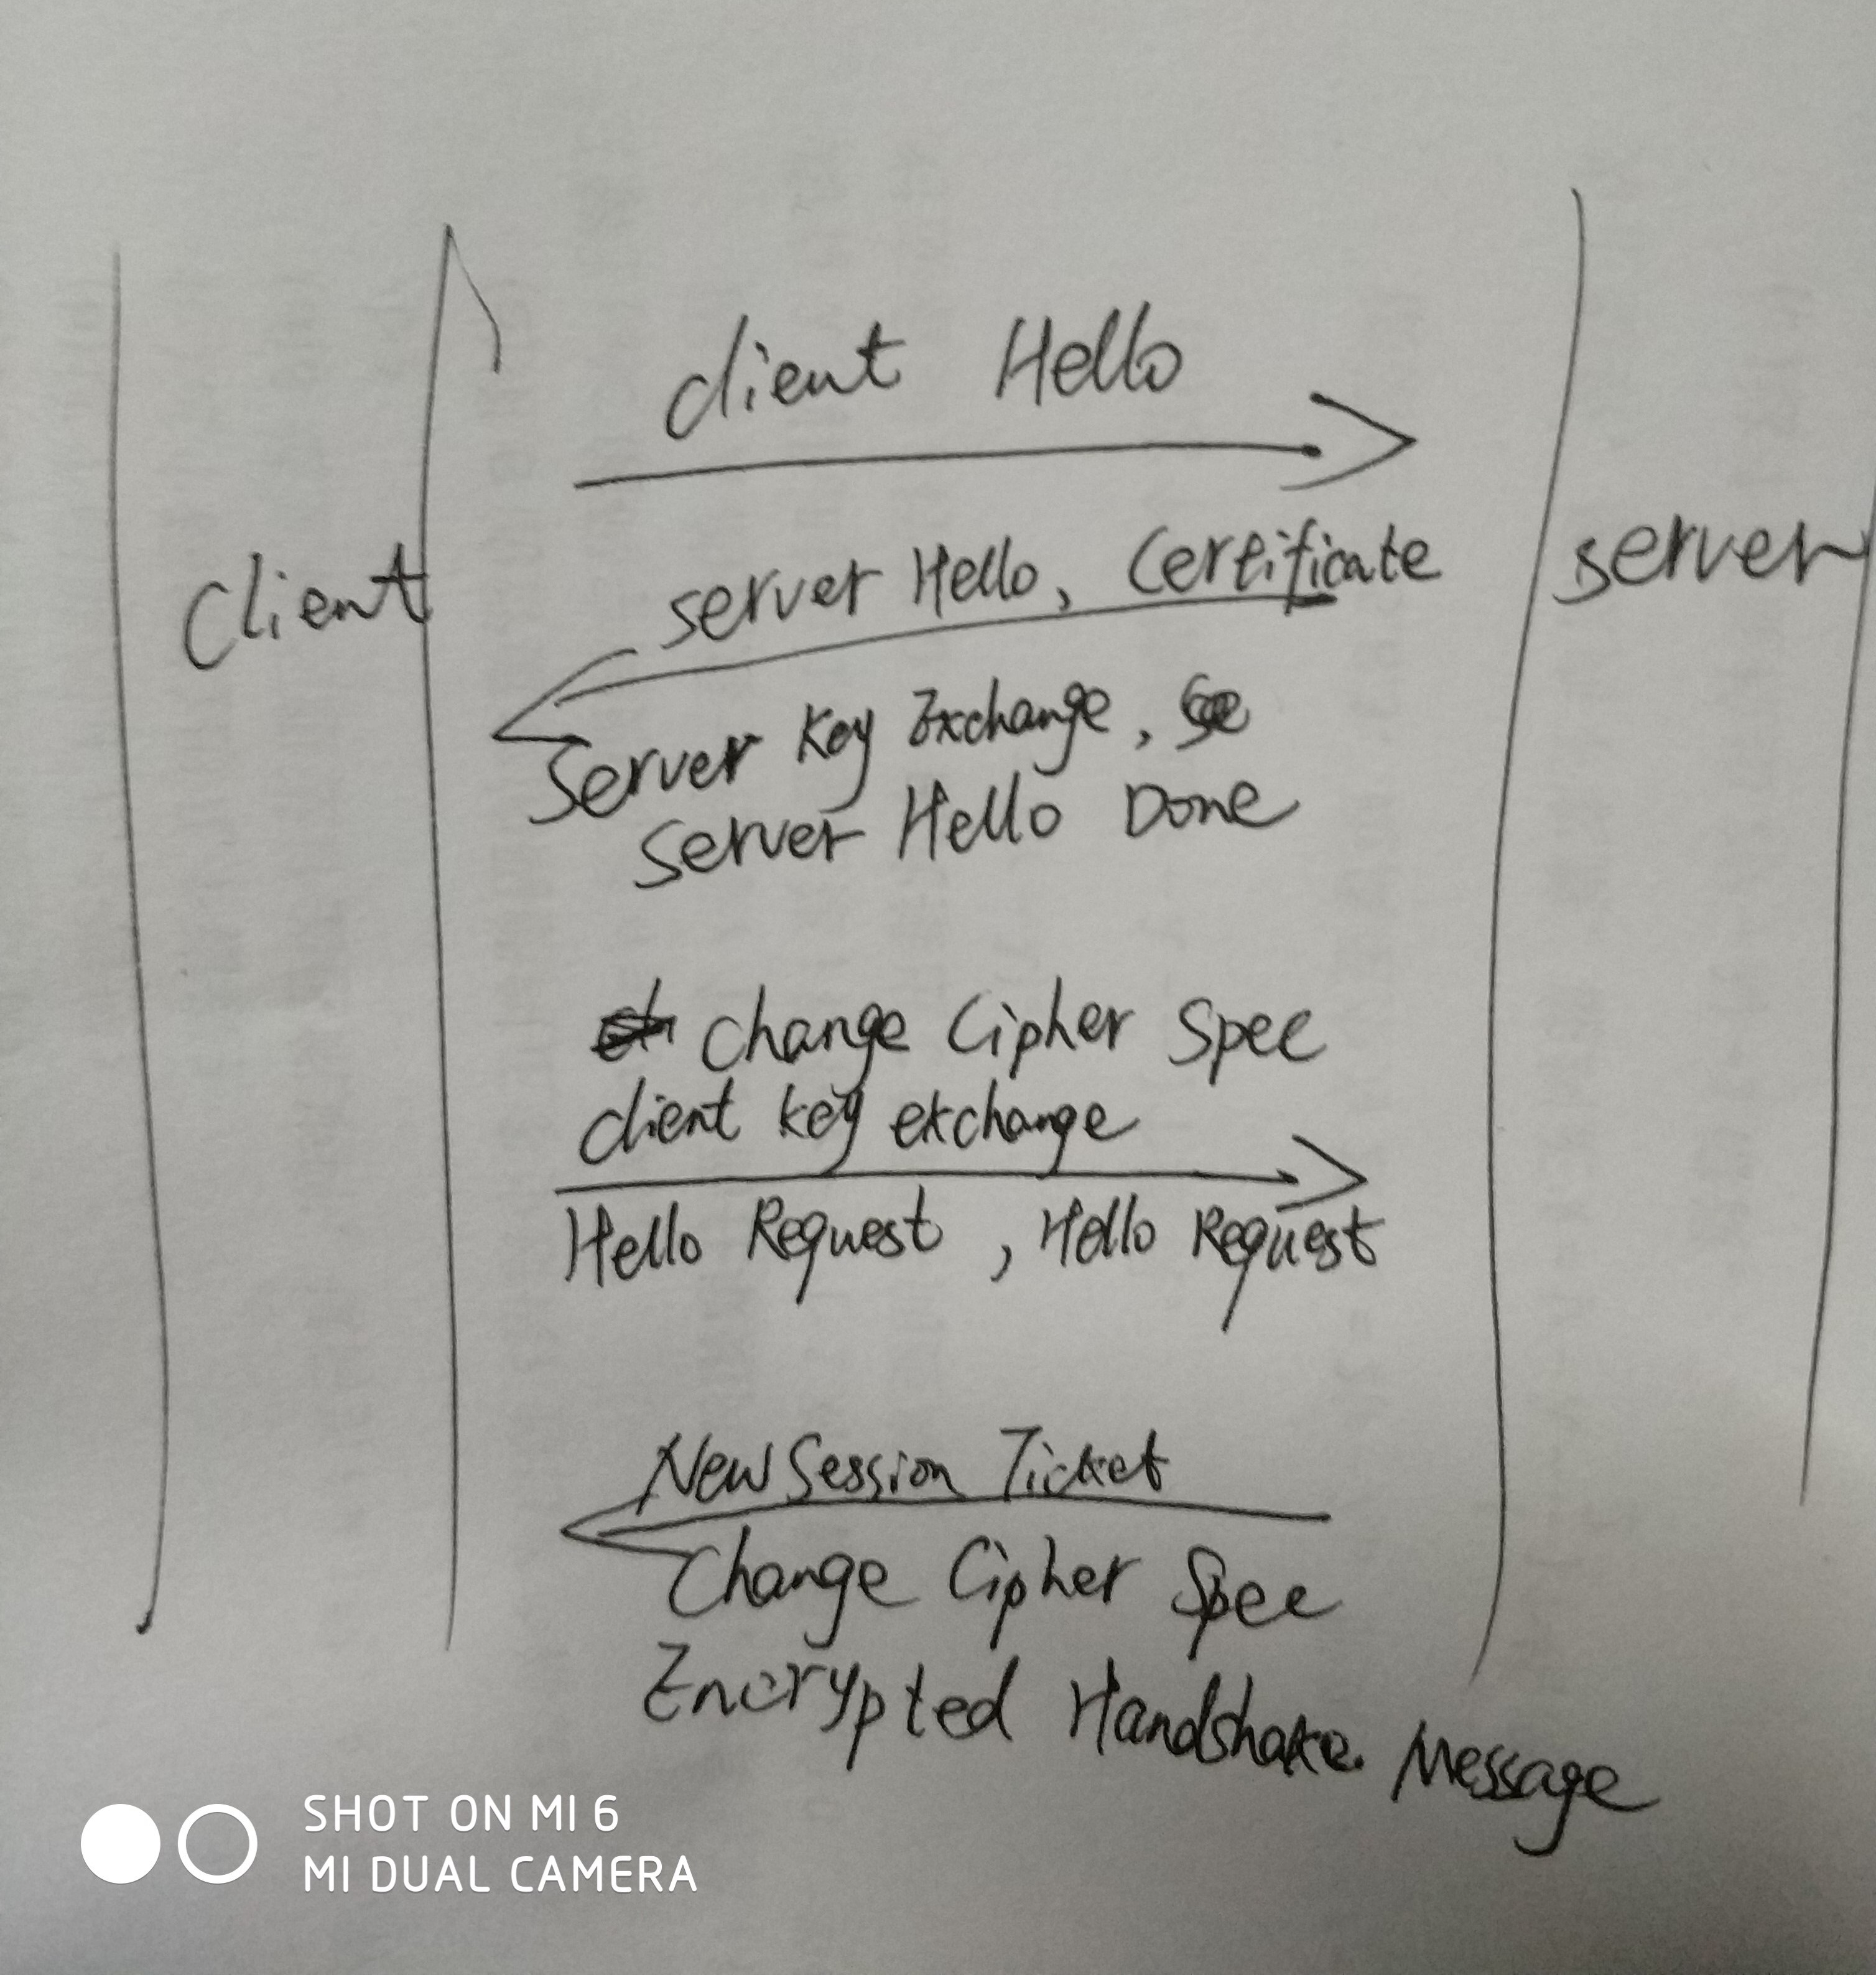 client Hello
Client
server Hello, Certificate
server
Server Key Exchange,
Server Hello Done
Change Cipher Spec
client key exchange
Hello Request , Hello Request
New Session Ticket
Change Cipher Spec
Encrypted Handshake Message
SHOT ON MI 6
MI DUAL CAMERA